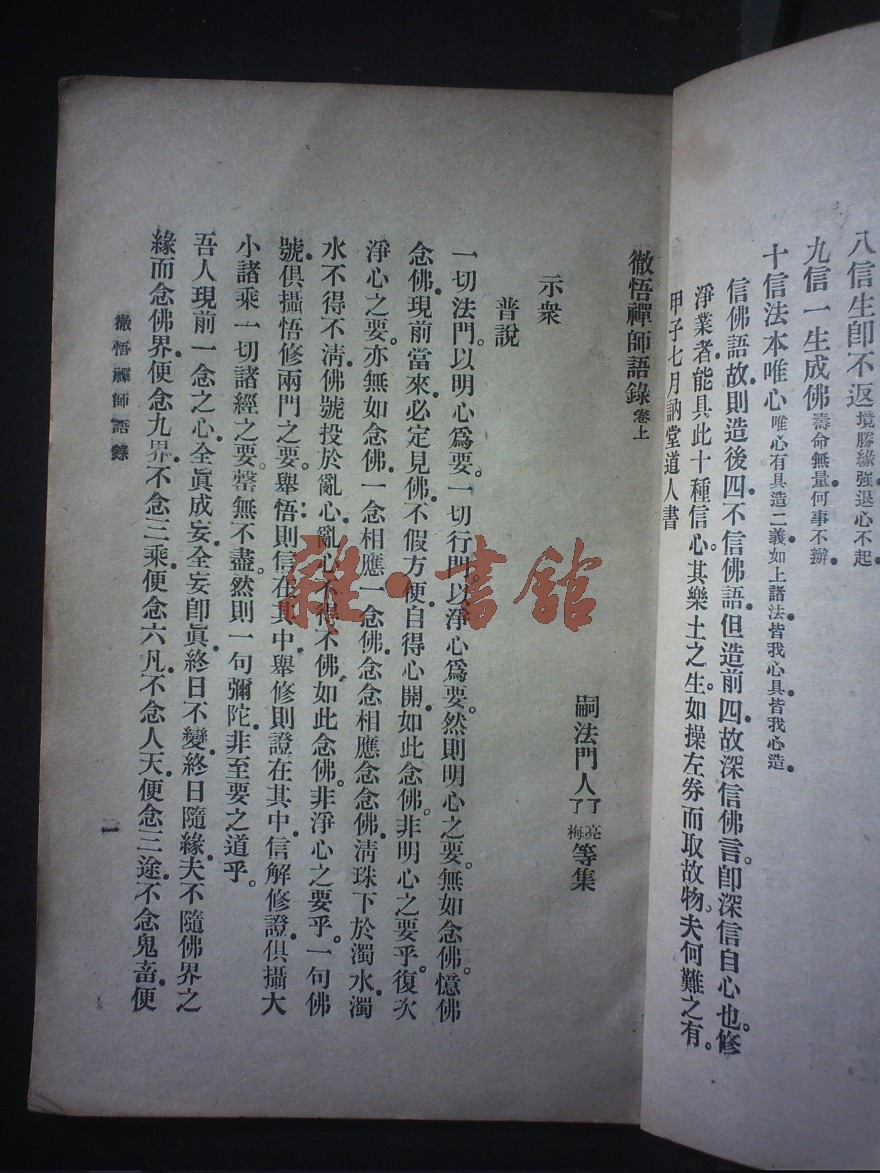 八信生卽不返境勝緣強退心不起。
九信一生成佛壽命無量何事不辦
十信法本唯心唯心有具造二義如上諸法皆我心具皆我心造。
信佛語故則造後四不信佛語但造前四故深信佛言卽深信自心也。修
淨業者能具此十種信心。其樂土之生如操左券而取故物。夫何難之有。
甲子七月訥堂道人書
徹悟禪師語錄卷上
嗣法門人了亮了梅等集
示衆
普說
一切法門以明心爲要。一切行門以淨心爲要。然則明心之要。無如念佛。憶佛
念佛。現前當來。必定見佛。不假方便。自得心開。如此念佛。非明心之要乎。復次
淨心之要。亦無如念佛。一念相應一念佛。念念相應念念佛。淸珠下於濁水。濁
水不得不淸。佛號投於亂心。亂心不得不佛。如此念佛。非淨心之要乎。一句佛
號。俱攝悟修兩門之要。舉悟則信在其中。舉修則證在其中。信解修證。俱攝大
小諸乘一切諸經之要。罄無不盡。然則一句彌陀。非至要之道乎。
吾人現前一念之心。全眞成妄。全妄卽眞。終日不變。終日隨緣。夫不隨佛界之
緣而念佛界。便念九界。不念三乘。便念六凡。不念人天。便念三途。不念鬼畜。便
徹悟禪師語錄
一
雜·書館